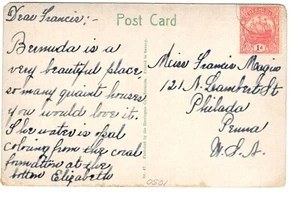 Dear Francis;-
Post Card
Bermuda is a
very beautiful place
so many quaint houses
you would love it.
The water is opal
coloring from the coral
formation at the
bottom Elizabeth
Miss Francis Magin
121 N. Lambert St
Philada
Penna
U.S.A.